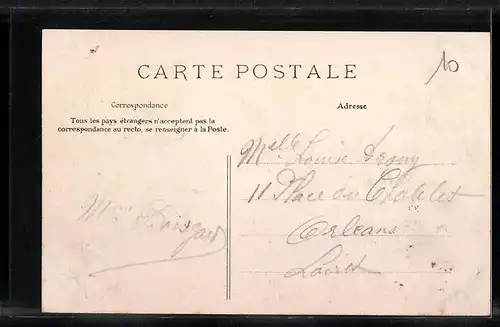 10
CARTE POSTALE
Correspondance
Adresse
Tous les pays étrangers n'acceptent pas la
correspondance au recto, se renseigner à la Poste.
Melle Louise Drouy
11 Place du Châtelet
Orléans
Loiret
Mme